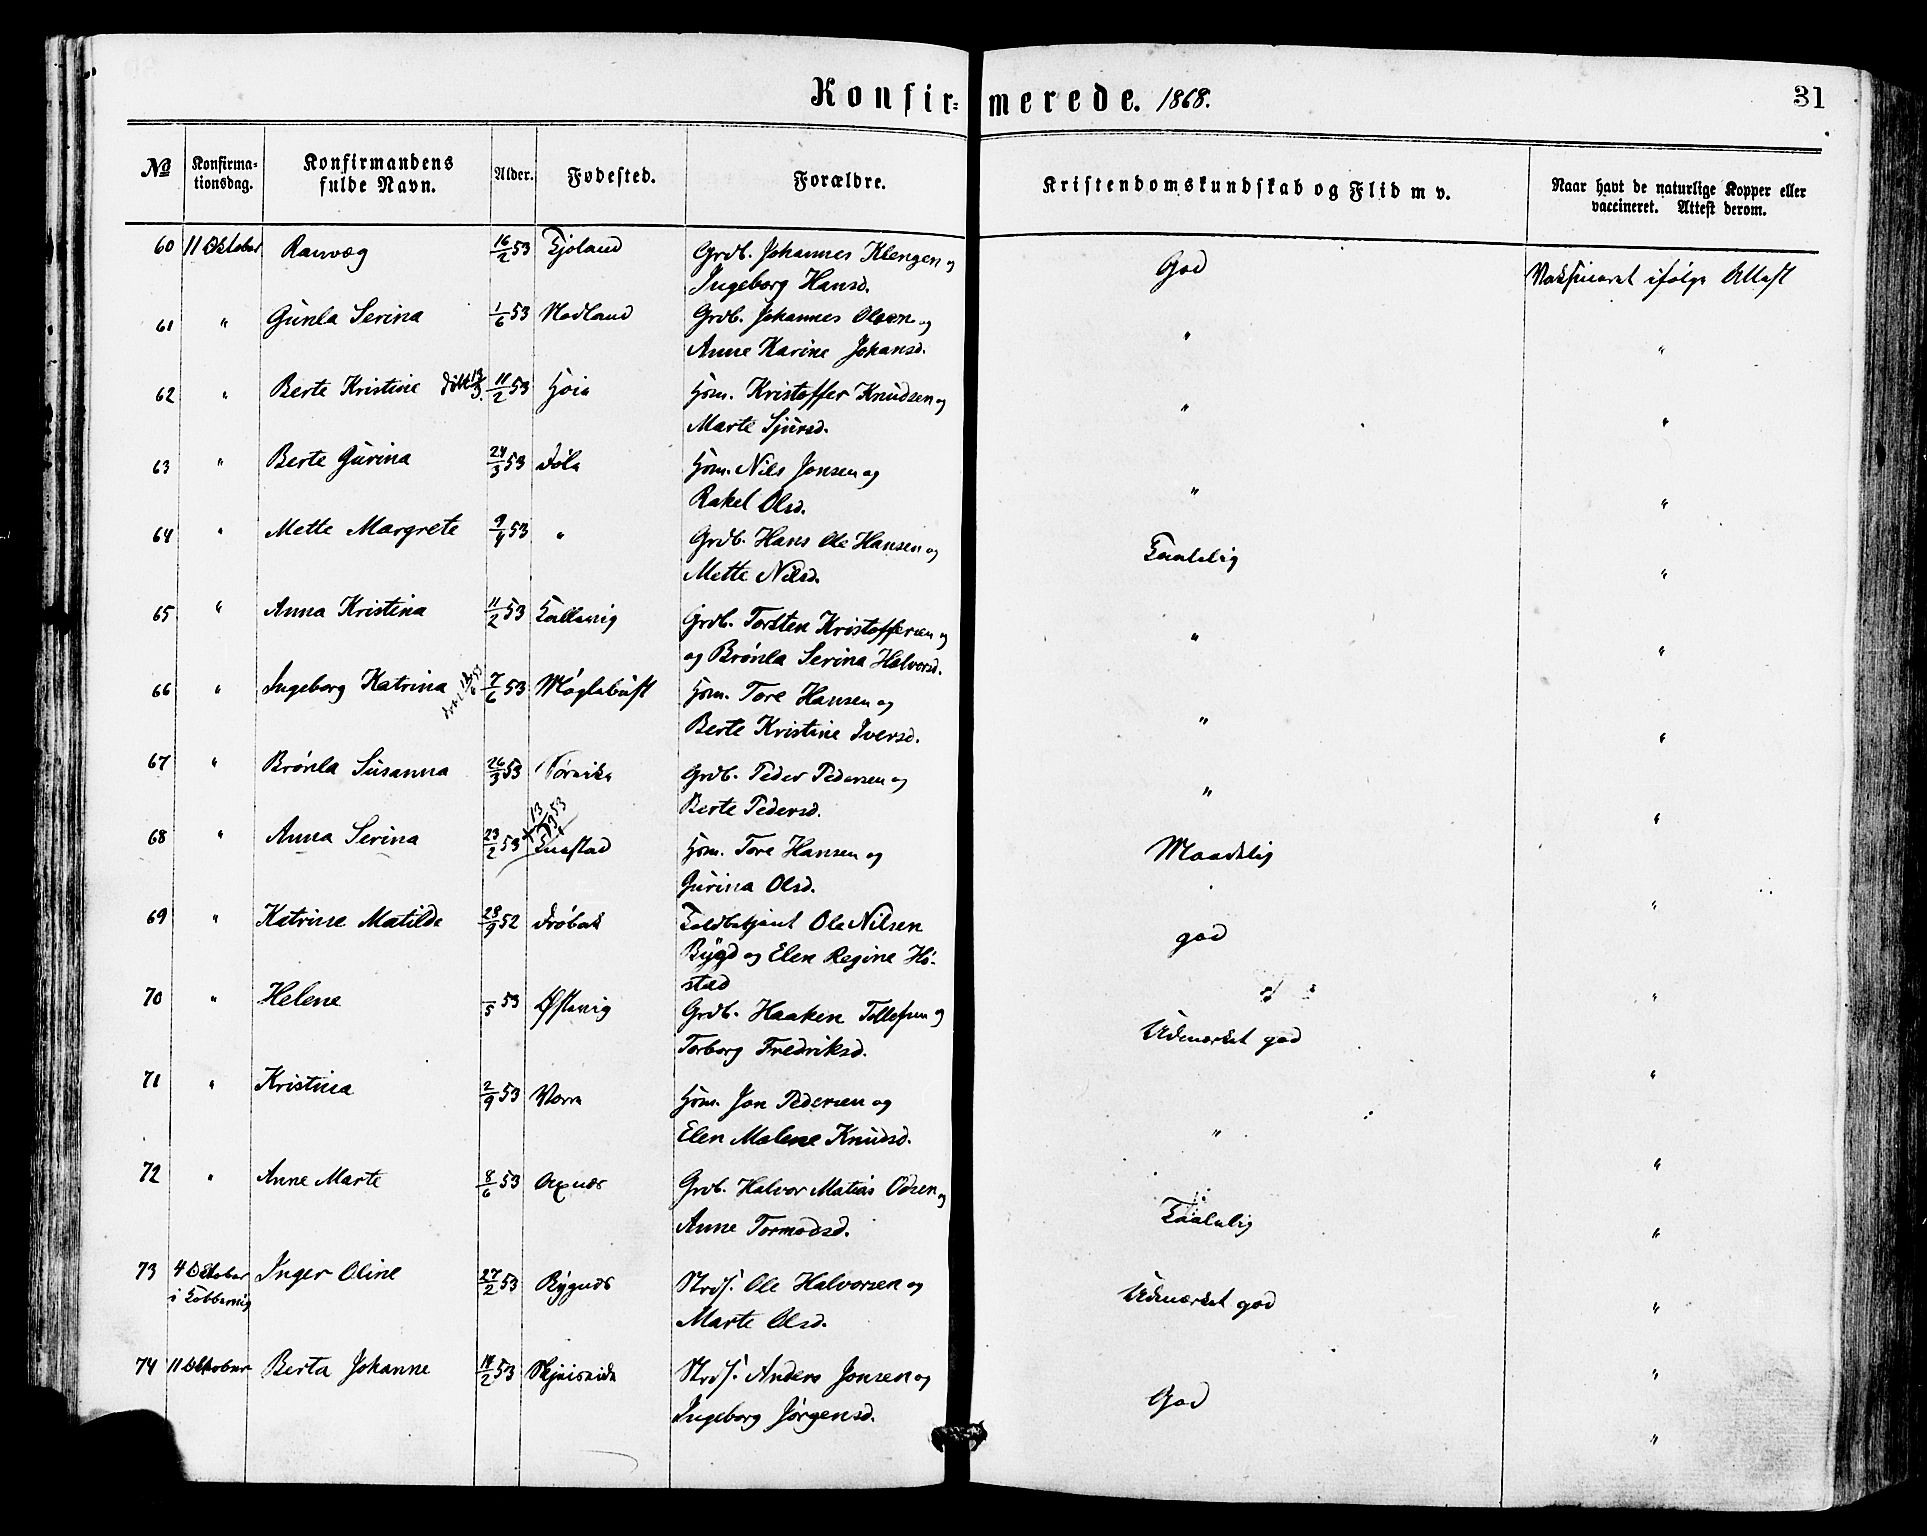 Konfir= merede. 1868. 31
№ Konfirma= tionsdag. Konfirmandens fulde Navn. Alder. Fødested. Forældre. Kristendomskundskab og Flid m v. Naar havt de naturlige Kopper eller vaccineret. Attest derom.
60 11 Oktober Ranvæg 16/2 53 Tjoland Grdb. Johannes Klengen og God
Ingeborg Hansd. Vaksineret ifølge Attest
61 " Gunla Serina 1/6 53 Nodland Grdb. Johannes Olsen og "
Anne Karine Johansd. "
62 " Berte Kristine døbt 13/3. 11/2 53 Hoia Hsm. Kristoffer Knudsen og "
Marte Sjursd. "
63 " Berte Gurina 24/3 53 Hsm. Nils Jonsen og "
Rakel Olsd. "
64 " Mette Margrete 9/4 53 " Grdb. Hans Ole Hansen og Taalelig
Mette Nilsd. "
65 " Anna Kristina 11/2 53 Grdb. Torsten Kristoffersen og "
og Brønla Serina Halvorsd. "
66 " Ingeborg Katrina 7/6 53 Møglebust Hsm. Tore Hansen og "
Berte Kristine Iversd. "
67 " Brønla Susanna 26/3 53 Grdb. Peder Pedersen og "
Berte Pedersd. "
68 " Anna Serina 23/2 53 Hsm. Tore Hansen og Maadelig
Gurina Olsd. "
69 " Katrine Matilde 28/9 52 Drøbak Toldbetjent Ole Nilsen god
Bygd og Elen Regine Hø-
stad "
70 " Helene /5 53 Østevig Grdb. Haaken Tollefsen og Udmærket god
Torborg Fredriksd. "
71 " Kristina 2/9 53 Varra Hsm. Jon Pedersen og "
Elen Malene Knudsd. "
72 " Anne Marte 8/6 53 Axnes Grdb. Halvor Matias Odsen og Taalelig
Anne Tormodsd. "
73 4 Oktober Inger Oline 27/2 53 Rygnes Strds. Ole Halvorsen og Udmærket god
i Kobbervig Marte Olsd. "
74 11 Oktober Berta Johanne 14/2 53 Strds. Anders Jonsen og God "
Ingeborg Jørgensd. "